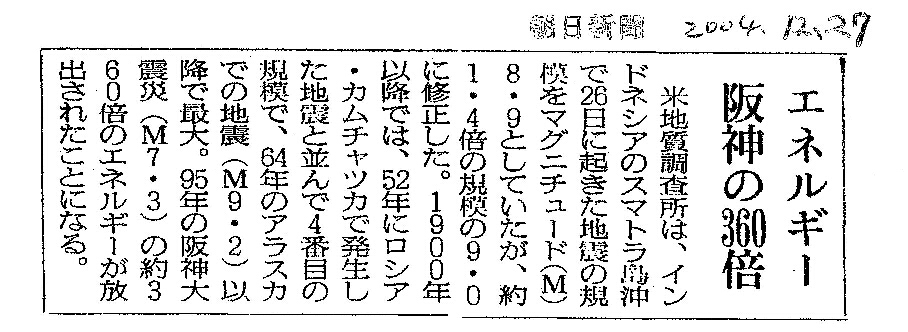 朝日新聞 2004.12.27
エネルギー
阪神の360倍
米地質調査所は、イン
ドネシアのスマトラ島沖
で26日に起きた地震の規
模をマグニチュード(M)
8・9としていたが、約
1・4倍の規模の9・0
に修正した。1900年
以降では、52年にロシア
・カムチャツカで発生し
た地震と並んで4番目の
規模で、64年のアラスカ
での地震(M9・2)以
降で最大。95年の阪神大
震災(M7・3)の約3
60倍のエネルギーが放
出されたことになる。